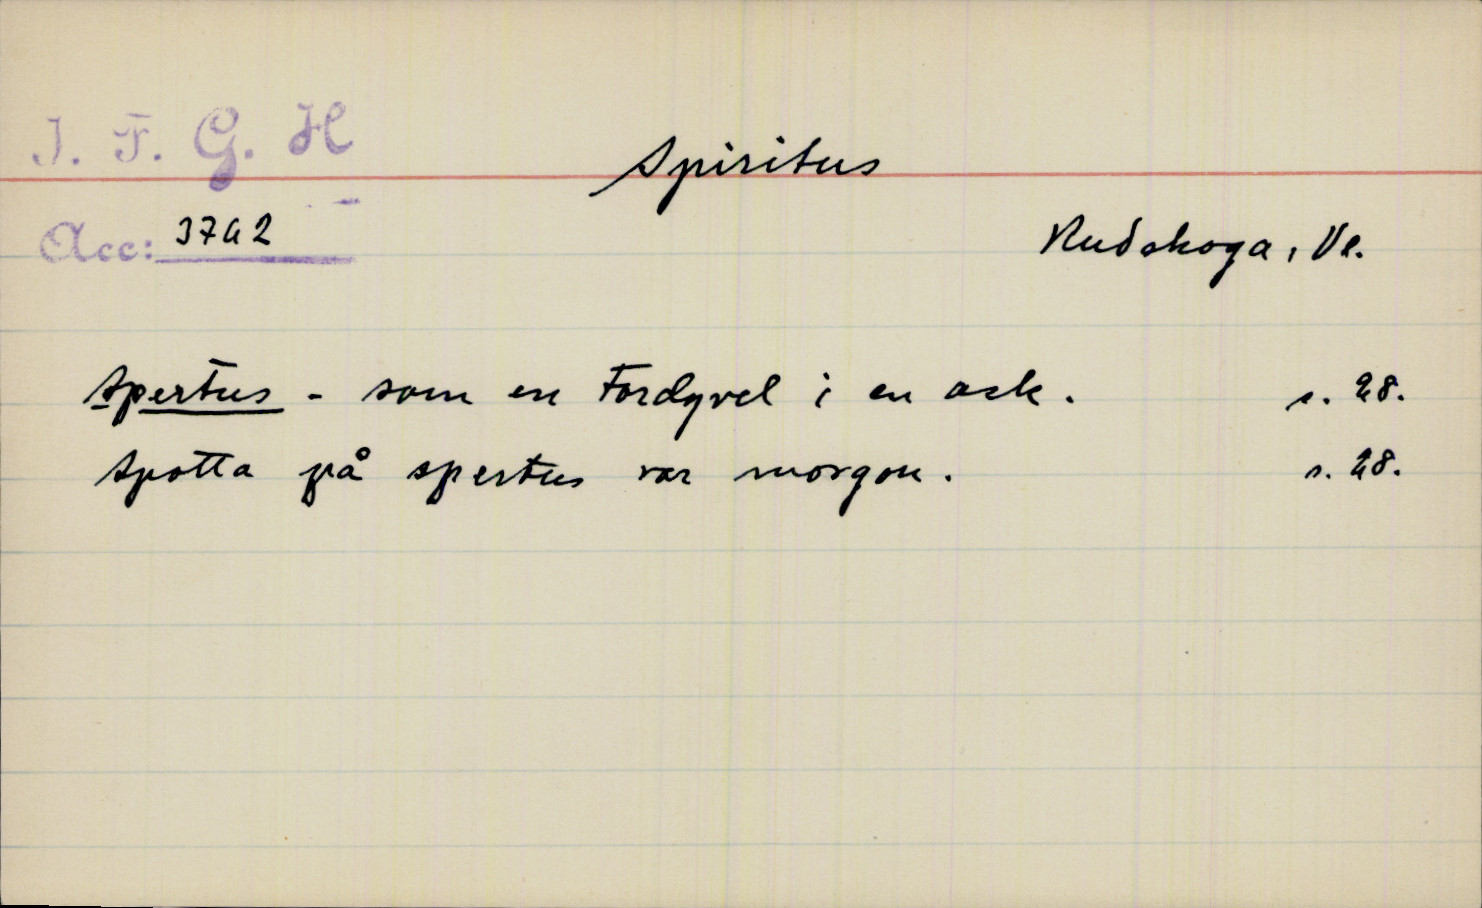 I. F. G. H
Spiritus
Acc: 3792
Rudskoga, Vr.
Spertus - som en Tordyvel i en ask. s. 28.
Spotta på spertus var morgon. s. 28.